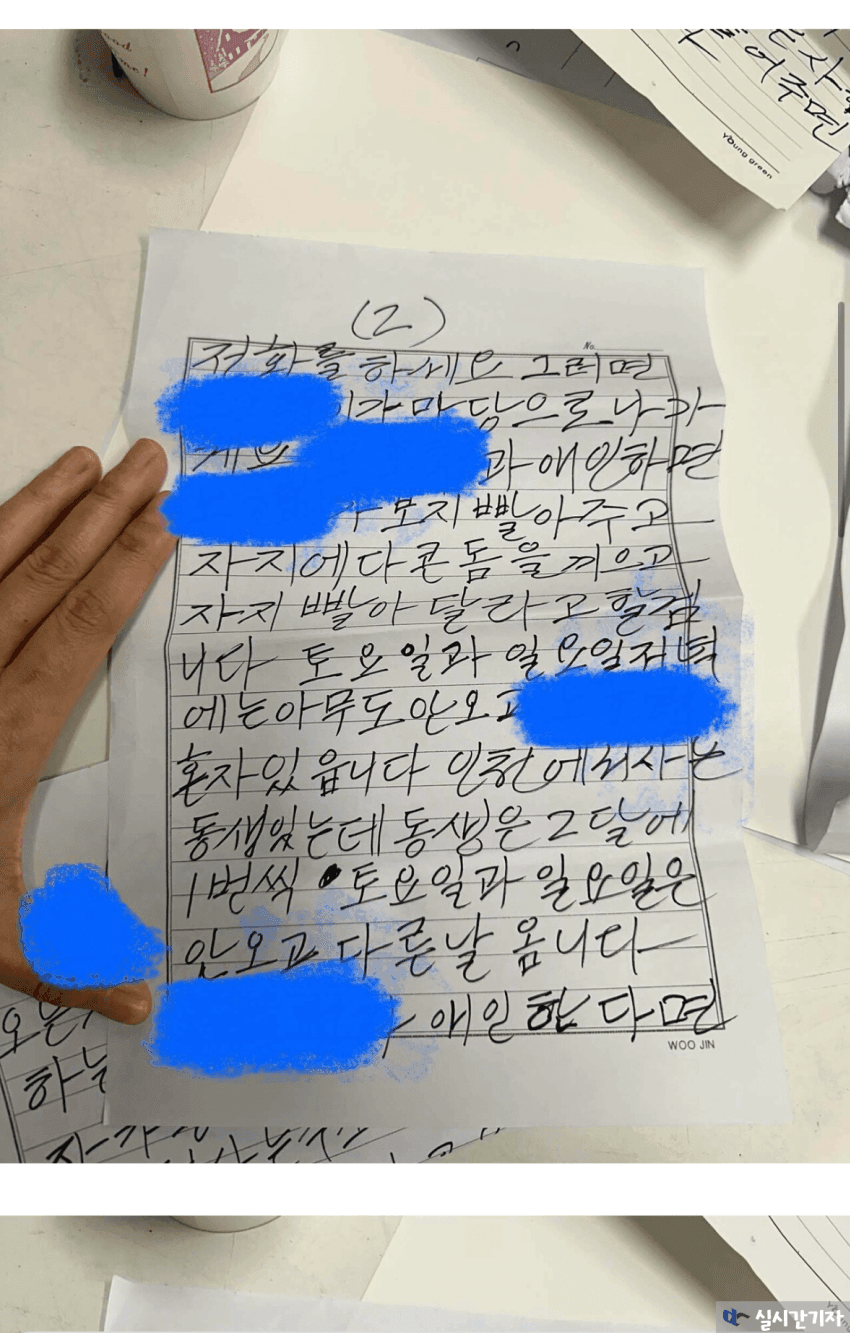 young green
(2)
No.
저화를 하세요 그러면
가 마당으로 나가
과 애인하면
보지 빨아주고
자지에다 콘돔을 끼우고
자지 빨아 달라고 할겁
니다 토요일과 일요일저녁
에는 아무도 안오고
혼자있읍니다 인천에서사는
동생있는데 동생은 2달에
1번씩 토요일과 일요일은
안오고 다른날 옵니다
애인한다면
WOO JIN
하는
실시간기자